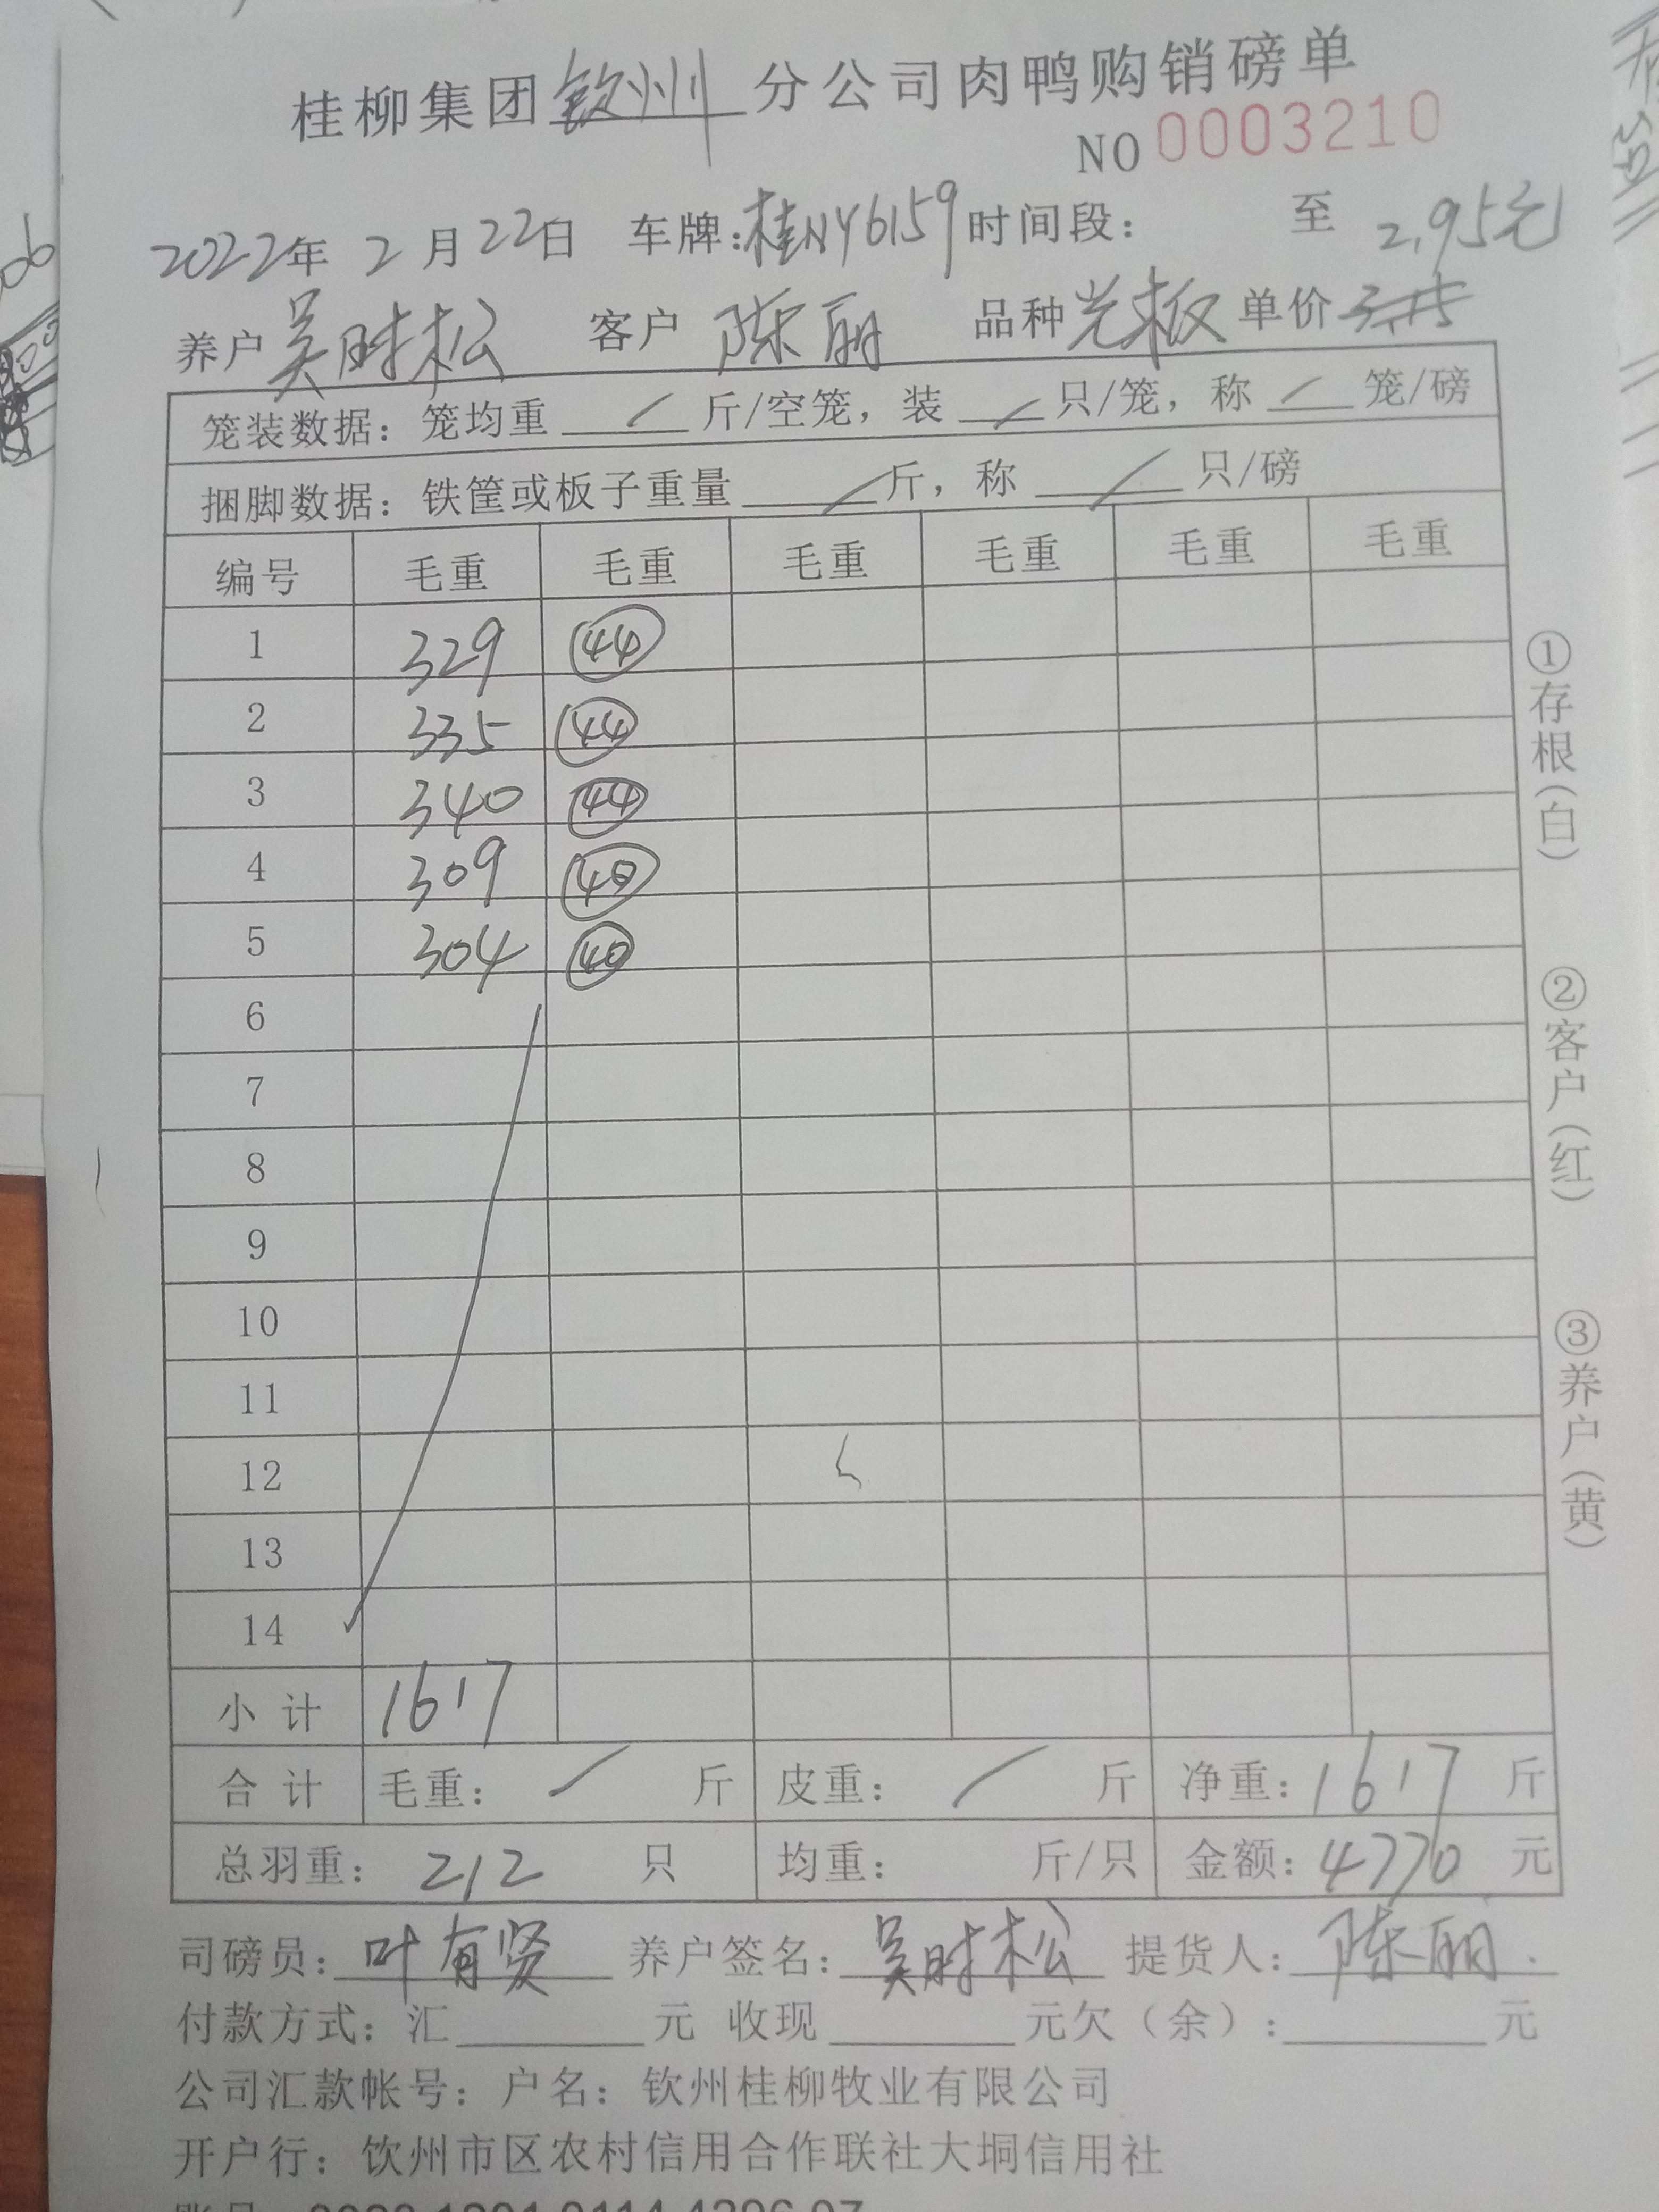 桂柳集团钦州分公司肉鸭购销磅单
NO 0003210
2022年 2月22日 车牌:桂NY6159 时间段: 至 2.95元
养户 吴时松 客户 陈丽 品种 光板 单价
笼装数据: 笼均重 / 斤/空笼, 装 / 只/笼, 称 / 笼/磅
捆脚数据: 铁筐或板子重量 / 斤, 称 / 只/磅
编号 毛重 毛重 毛重 毛重 毛重 毛重
1 329 44
2 335 44
3 340 44
4 309 40
5 304 40
6
7
8
9
10
11
12
13
14
小计 1617
合计 毛重: / 斤 皮重: / 斤 净重: 1617 斤
总羽重: 212 只 均重: 斤/只 金额: 4770 元
司磅员: 叶有贤 养户签名: 吴时松 提货人: 陈丽
付款方式: 汇 元 收现 元欠(余): 元
公司汇款帐号: 户名: 钦州桂柳牧业有限公司
开户行: 钦州市区农村信用合作联社大垌信用社
①存根(白)
②客户(红)
③养户(黄)